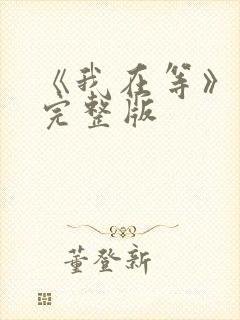 《我在等》
完整版
董登新